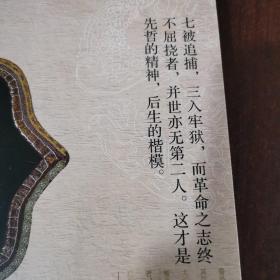 七被追捕，三入牢狱，而革命之志终
不屈挠者，并世亦无第二人。这才是
先哲的精神，后生的楷模。